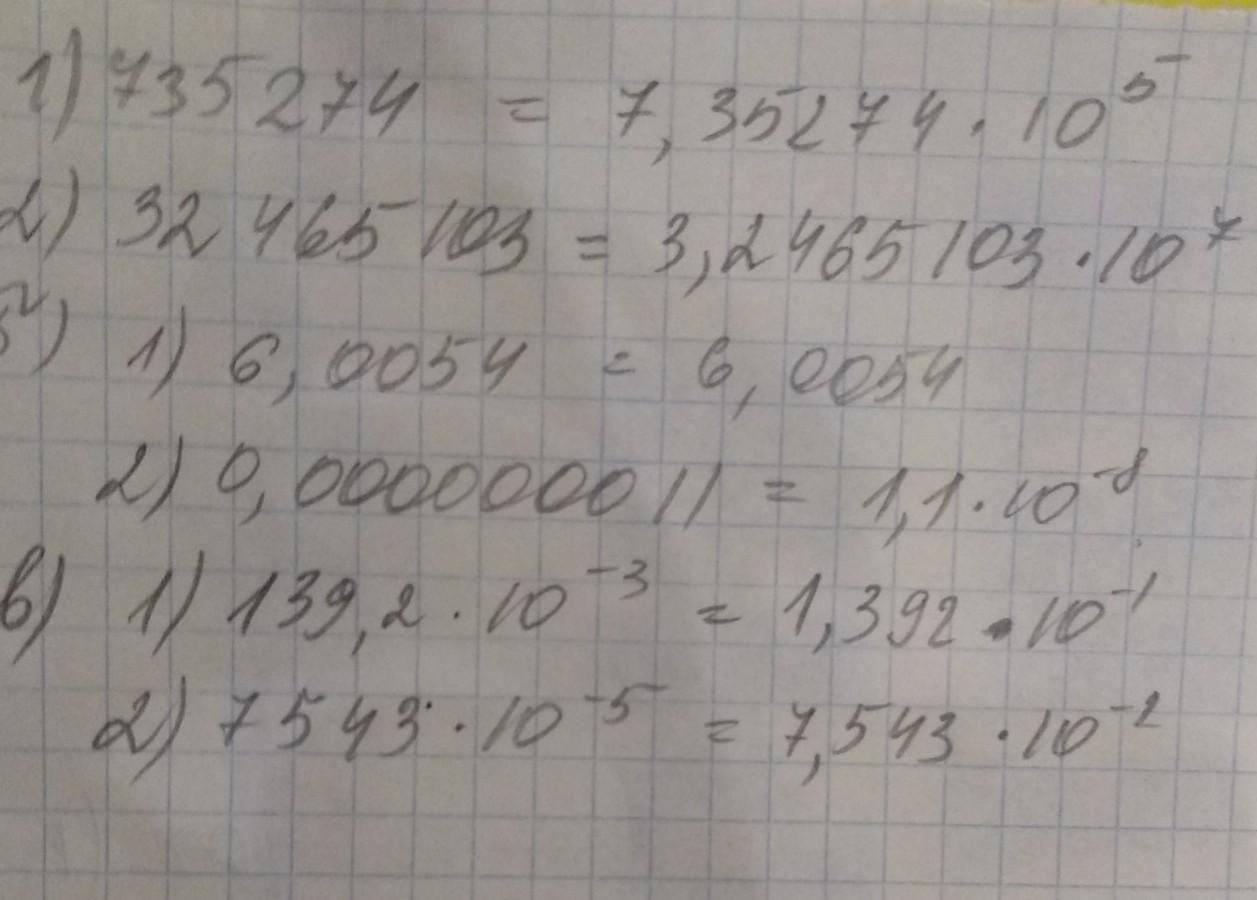 1) 735274 = 7,35274 · 10⁵
2) 32 465 103 = 3,2465103 · 10⁷
б) 1) 6,0054 = 6,0054
2) 0,000000011 = 1,1 · 10⁻⁸
в) 1) 139,2 · 10⁻³ = 1,392 · 10⁻¹
2) 7543 · 10⁻⁵ = 7,543 · 10⁻²